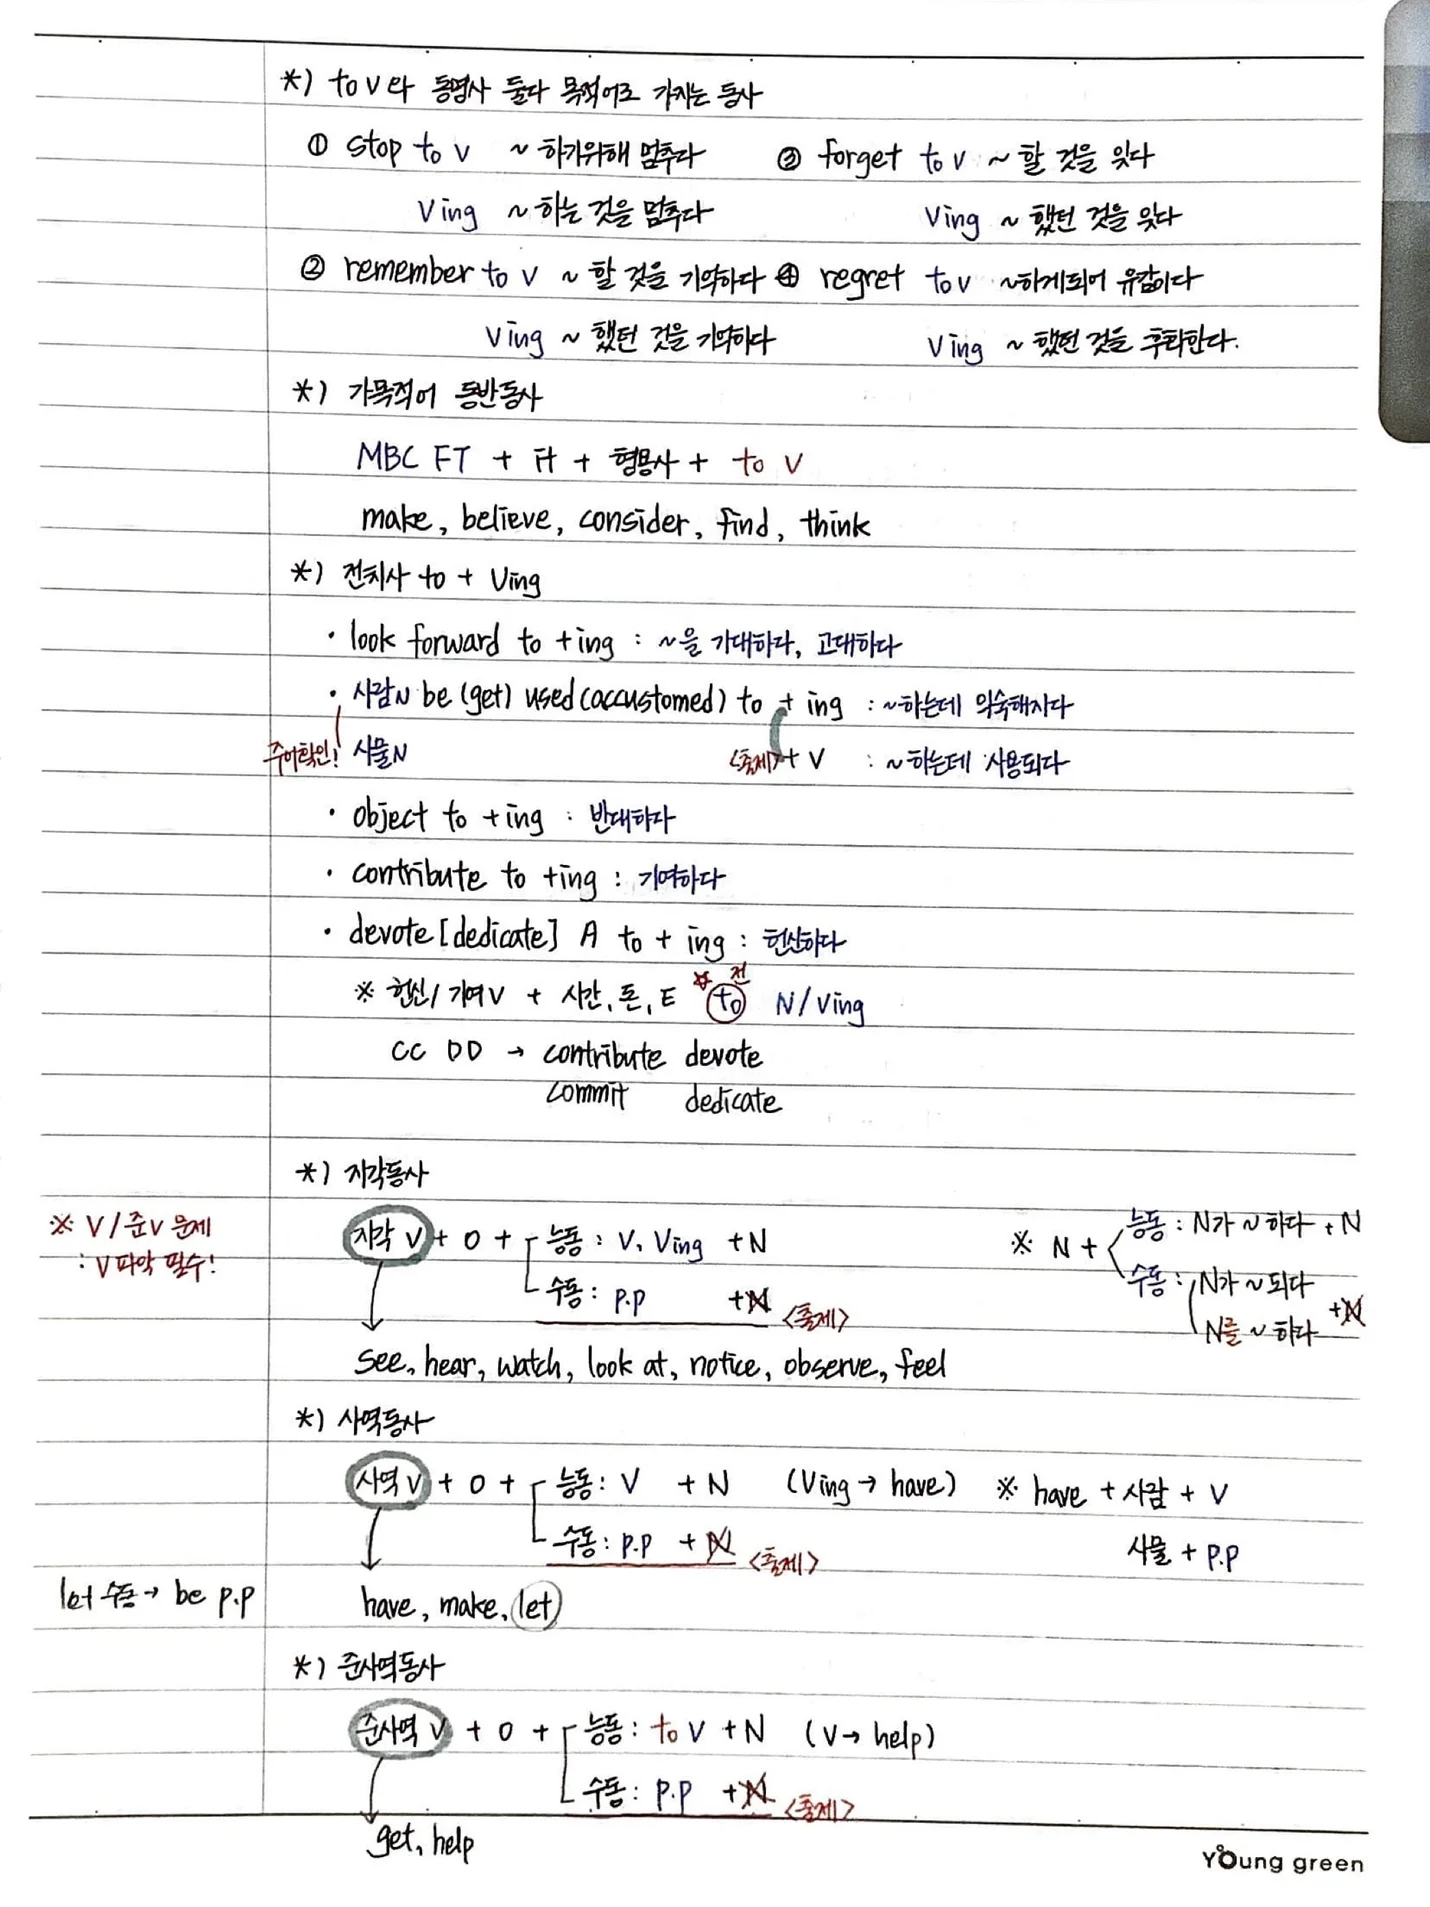 *) to V와 동명사 둘다 목적어로 가지는 동사
① stop to V ~하기위해 멈추다 ③ forget to V ~할 것을 잊다
Ving ~하는 것을 멈추다 Ving ~했던 것을 잊다
② remember to V ~할 것을 기억하다 ④ regret to V ~하게되어 유감이다
Ving ~했던 것을 기억하다 Ving ~했던 것을 후회한다.
*) 가목적어 동반동사
MBC FT + it + 형용사 + to V
make, believe, consider, find, think
*) 전치사 to + Ving
· look forward to +ing : ~을 기대하다, 고대하다
· 사람N be (get) used (accustomed) to + ing : ~하는데 익숙해지다
주어확인! 사물N <출제> + V : ~하는데 사용되다
· object to +ing : 반대하다
· contribute to +ing : 기여하다
· devote [dedicate] A to + ing : 헌신하다
전
※ 헌신/기여V + 시간, 돈, E ☆ to N/Ving
CC DD → contribute devote
commit dedicate
*) 지각동사
※ V/준V 문제 지각 V + O + 능동 : V, Ving +N ※ N + 능동 : N가 ~하다 +N
: V 파악 필수! 수동 : p.p +N <출제> 수동 : N가 ~되다
N를 ~하다 +N
see, hear, watch, look at, notice, observe, feel
*) 사역동사
사역 V + O + 능동 : V + N (Ving → have) ※ have + 사람 + V
수동 : p.p + N <출제> 사물 + p.p
let 수동 → be p.p have, make, let
*) 준사역동사
준사역 V + O + 능동 : to V +N (V → help)
수동 : p.p +N <출제>
get, help
Young green